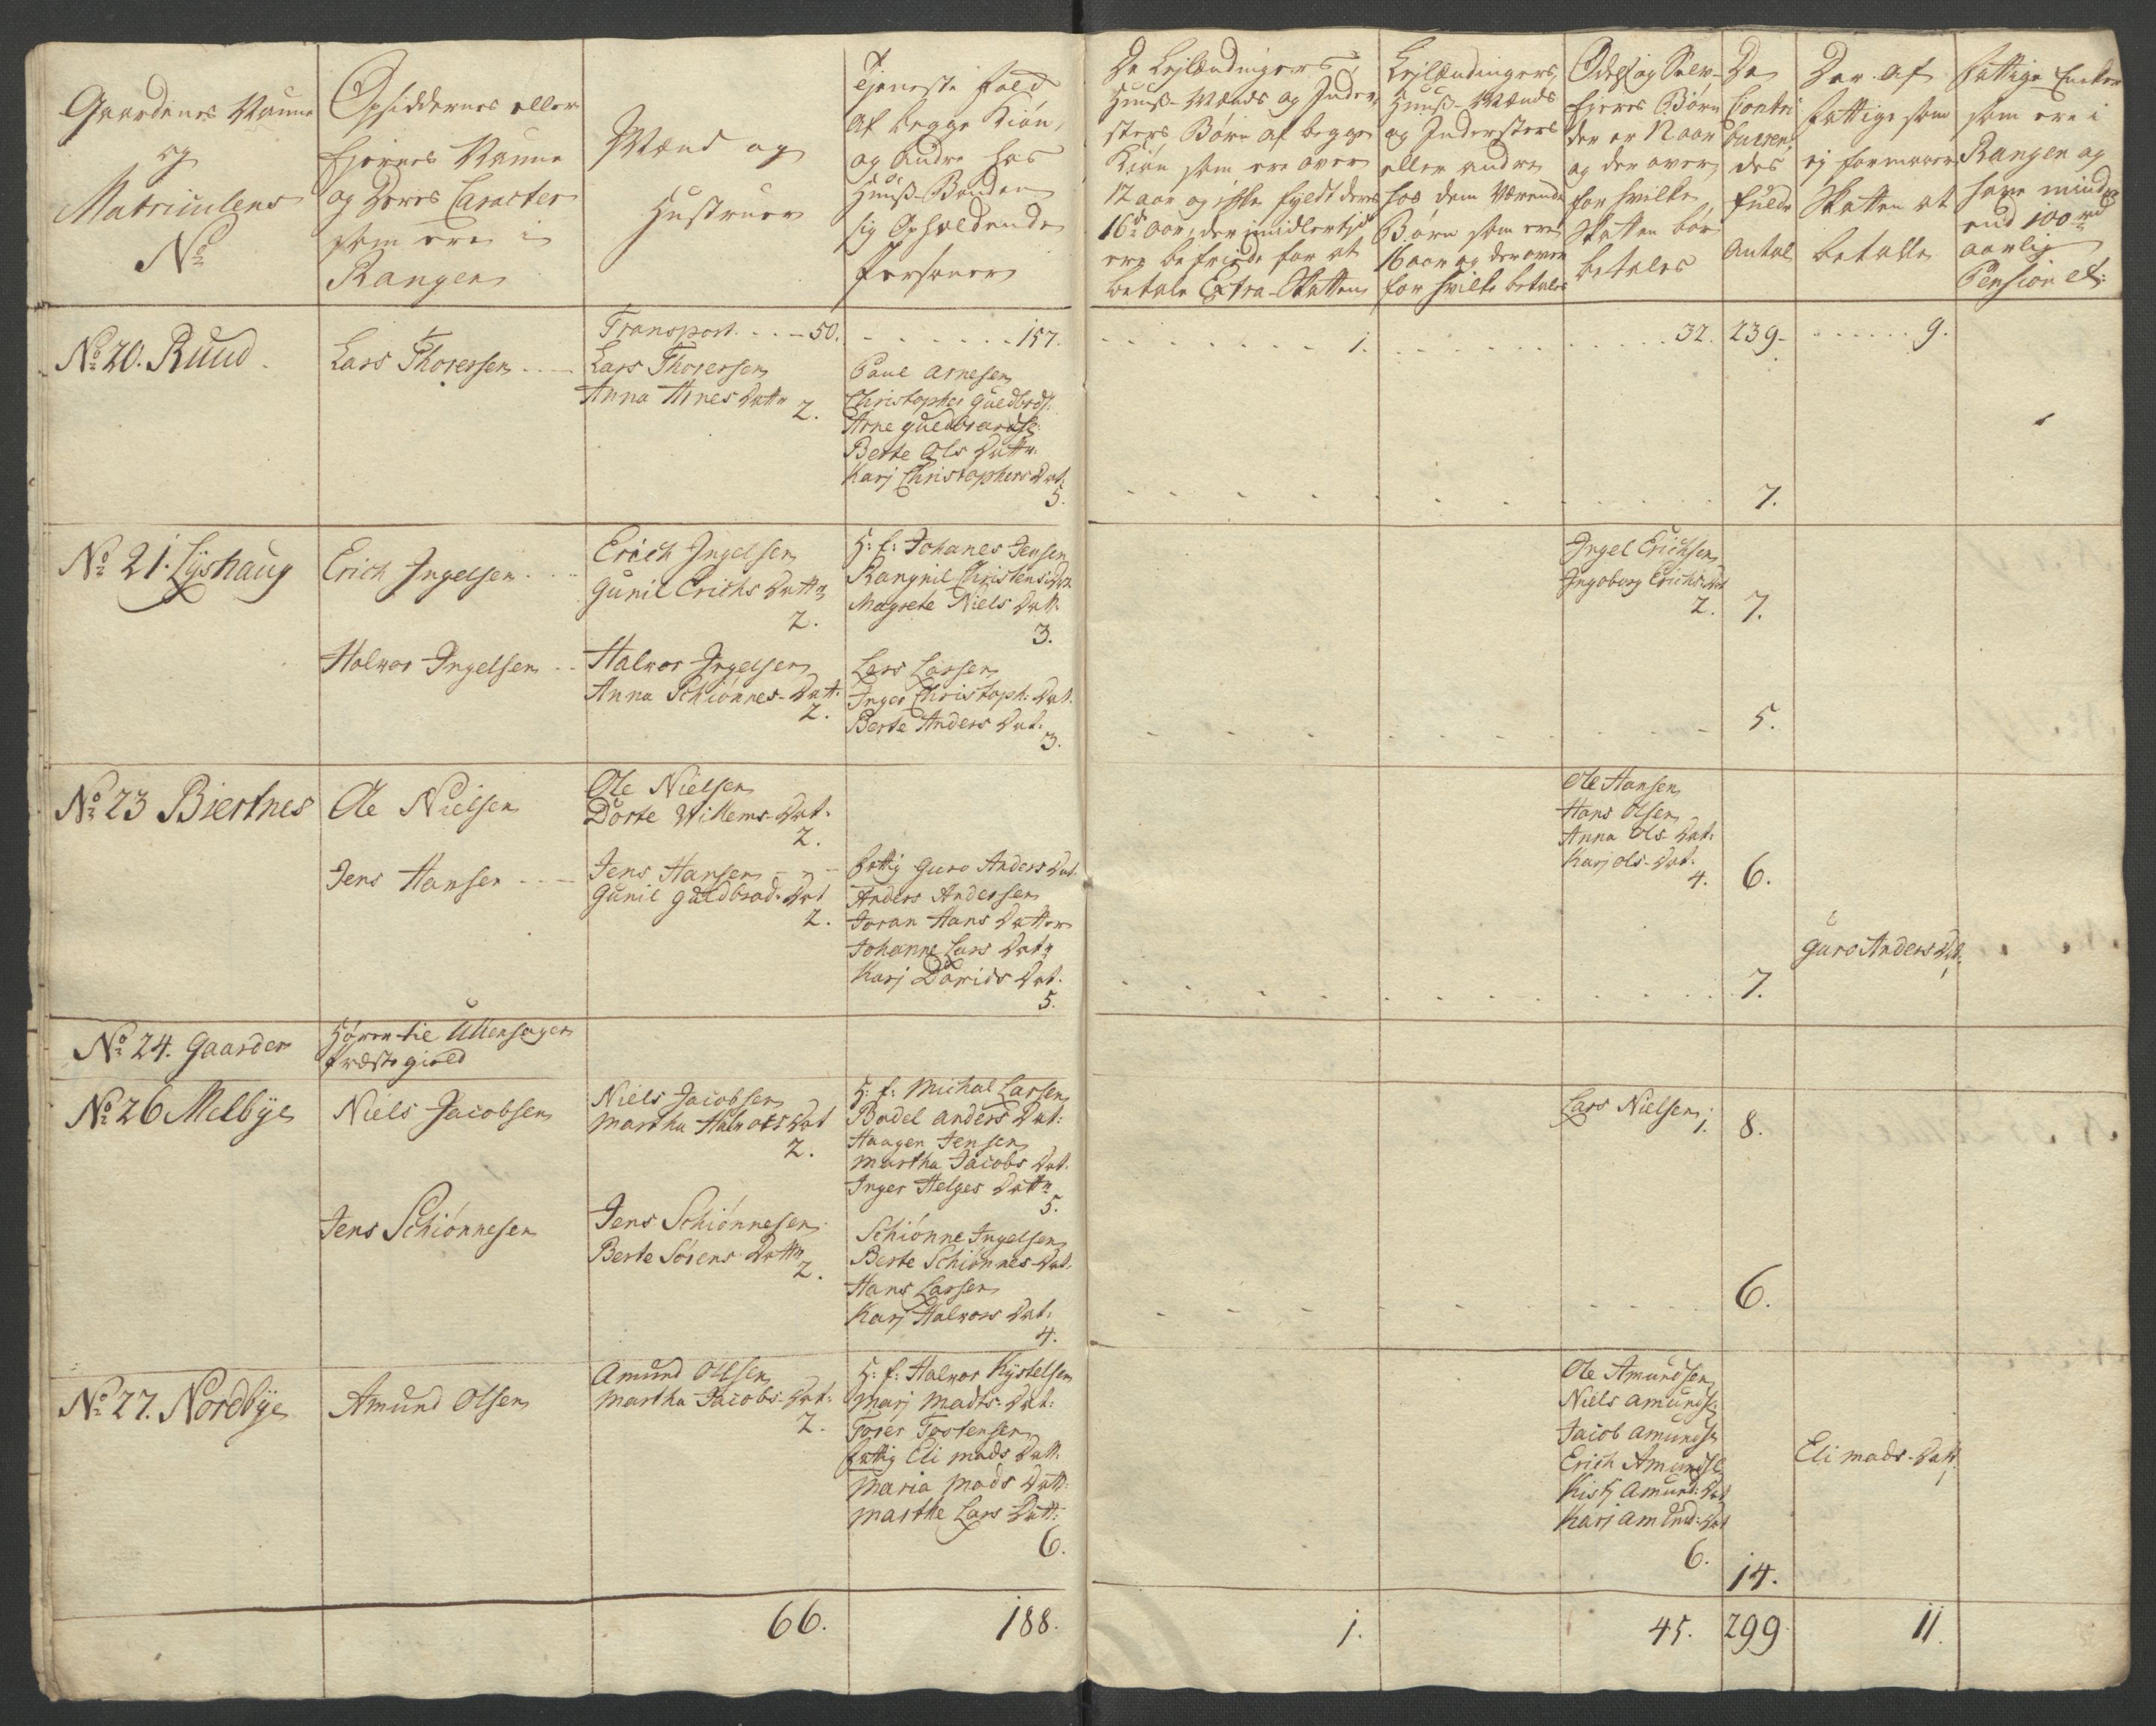 Gaardenes Nanne
og
Matriculens
No
Opsiddernes eller
Ejernes Nanne
og Deres Caracter
som ere i
Rangen
Mænd og
Hustruer
Tjeneste Folk
Af begge Kiøn,
og Andre hos
Huus-Bonden
sig Opholdende
Personer
De Lejlændingers,
Huus-Mænds og Inder-
sters Børn af begge
Kiøn som ere over
12 aar og ikke fyldt deres
16de aar, der imidlertid
ere befriede for at
betale Extra-Skatten
Lejlændingers,
Huus-Mænds
og Indersters
eller andre
hos dem værende
Børn som ere
16 aar og derover
for hvilke betales
Odels og Selv-
Ejeres Børn
der er 12 aar
og der over,
for hvilke
Skatten bør
betales
De
Contri-
buerens
des
fulde
Antal
Der af
fattige som
ej formaaer
Skatten at
betale
Fattige Enker
som ere i
Rangen og
have mindre
end 100 rd
aarlig
Pension etc:
Transport. . . . 50. . . . . . . . 157. . . . . . . . . 1. . . . . . . . . 32. 239. . . . . . . 9.
No 20. Ruud.
Lars Thoressen . . .
Lars Thoressen
Anna Arnes Dattr
2.
Paul Arnesen
Christopher Guldbrds:
Arne Guldbrandss:
Berte Ols Dattr.
Karj Christophers Dat:
5.
7.
No 21. Lÿshaug
Erich Ingelsen . . .
Erich Ingelsen
Gunil Erichs Dattr
2.
H: f: Johanes Jensen
Rangnil Christens Dat
Magrete Niels Datt.
3.
Ingel Erichsen
Ingeborg Erichs Dat
2.
7.
Halvor Ingelsen . .
Halvor Ingelsen
Anna Schiønnes-Datt.
2.
Lars Larsen
Inger Christoph: Dat.
Berte Anders Dat:
3.
5.
No 23 Biertnes
Ole Nielsen
Ole Nielsen
Dorte Willems-Dat.
2.
Ole Hansen
Hans Olsen
Anna Ols-Dat:
Karj Ols-Dat.
4.
6.
Jens Hansen . . .
Jens Hansen
Gunil Guldbrad:Dat
2.
fattig Guro Anders Dat.
Anders Andersen
Joran Hans Datter
Johanne Lars Datr
Karj Davids Dat.
5.
7.
Guro Anders Dat.
1
No 24. Gaarder
Hører til Ullensager
Præstegield
No 26 Melbÿe
Niels Jacobsen
Niels Jacobsen
Martha Halvors Dat
2.
H: f: Michal Larsen
Bodel Anders Dat:
Haagen Jensen
Martha Jacobs Dat.
Inger Helges Dattr
5.
Lars Nielsen
1.
8.
Jens Schiønnesen
Jens Schiønnesen
Berte Sørens Dattr
2.
Schiønne Ingelsen
Berte Schiønnes-Dat.
Hans Larsen
Karj Halvors Dat:
4.
6.
No 27. Nordbÿe
Amund Olsen
Amund Olsen
Martha Jacobs-Dat:
2.
H: f: Halvor Kystelsen
Marj Madts-Dat:
Torer Tostensen
fattig Eli Mads Datt.
Maria Mads Datt:
Marthe Lars Datt:
6.
Ole Amundsen
Niels Amunds:
Jacob Amunds
Erich Amunds:
Kisti Amund:Dat
Karj Amund:Dat
6.
14.
Eli Mads-Datt.
1
66. 188. 1. 45. 299. 11.